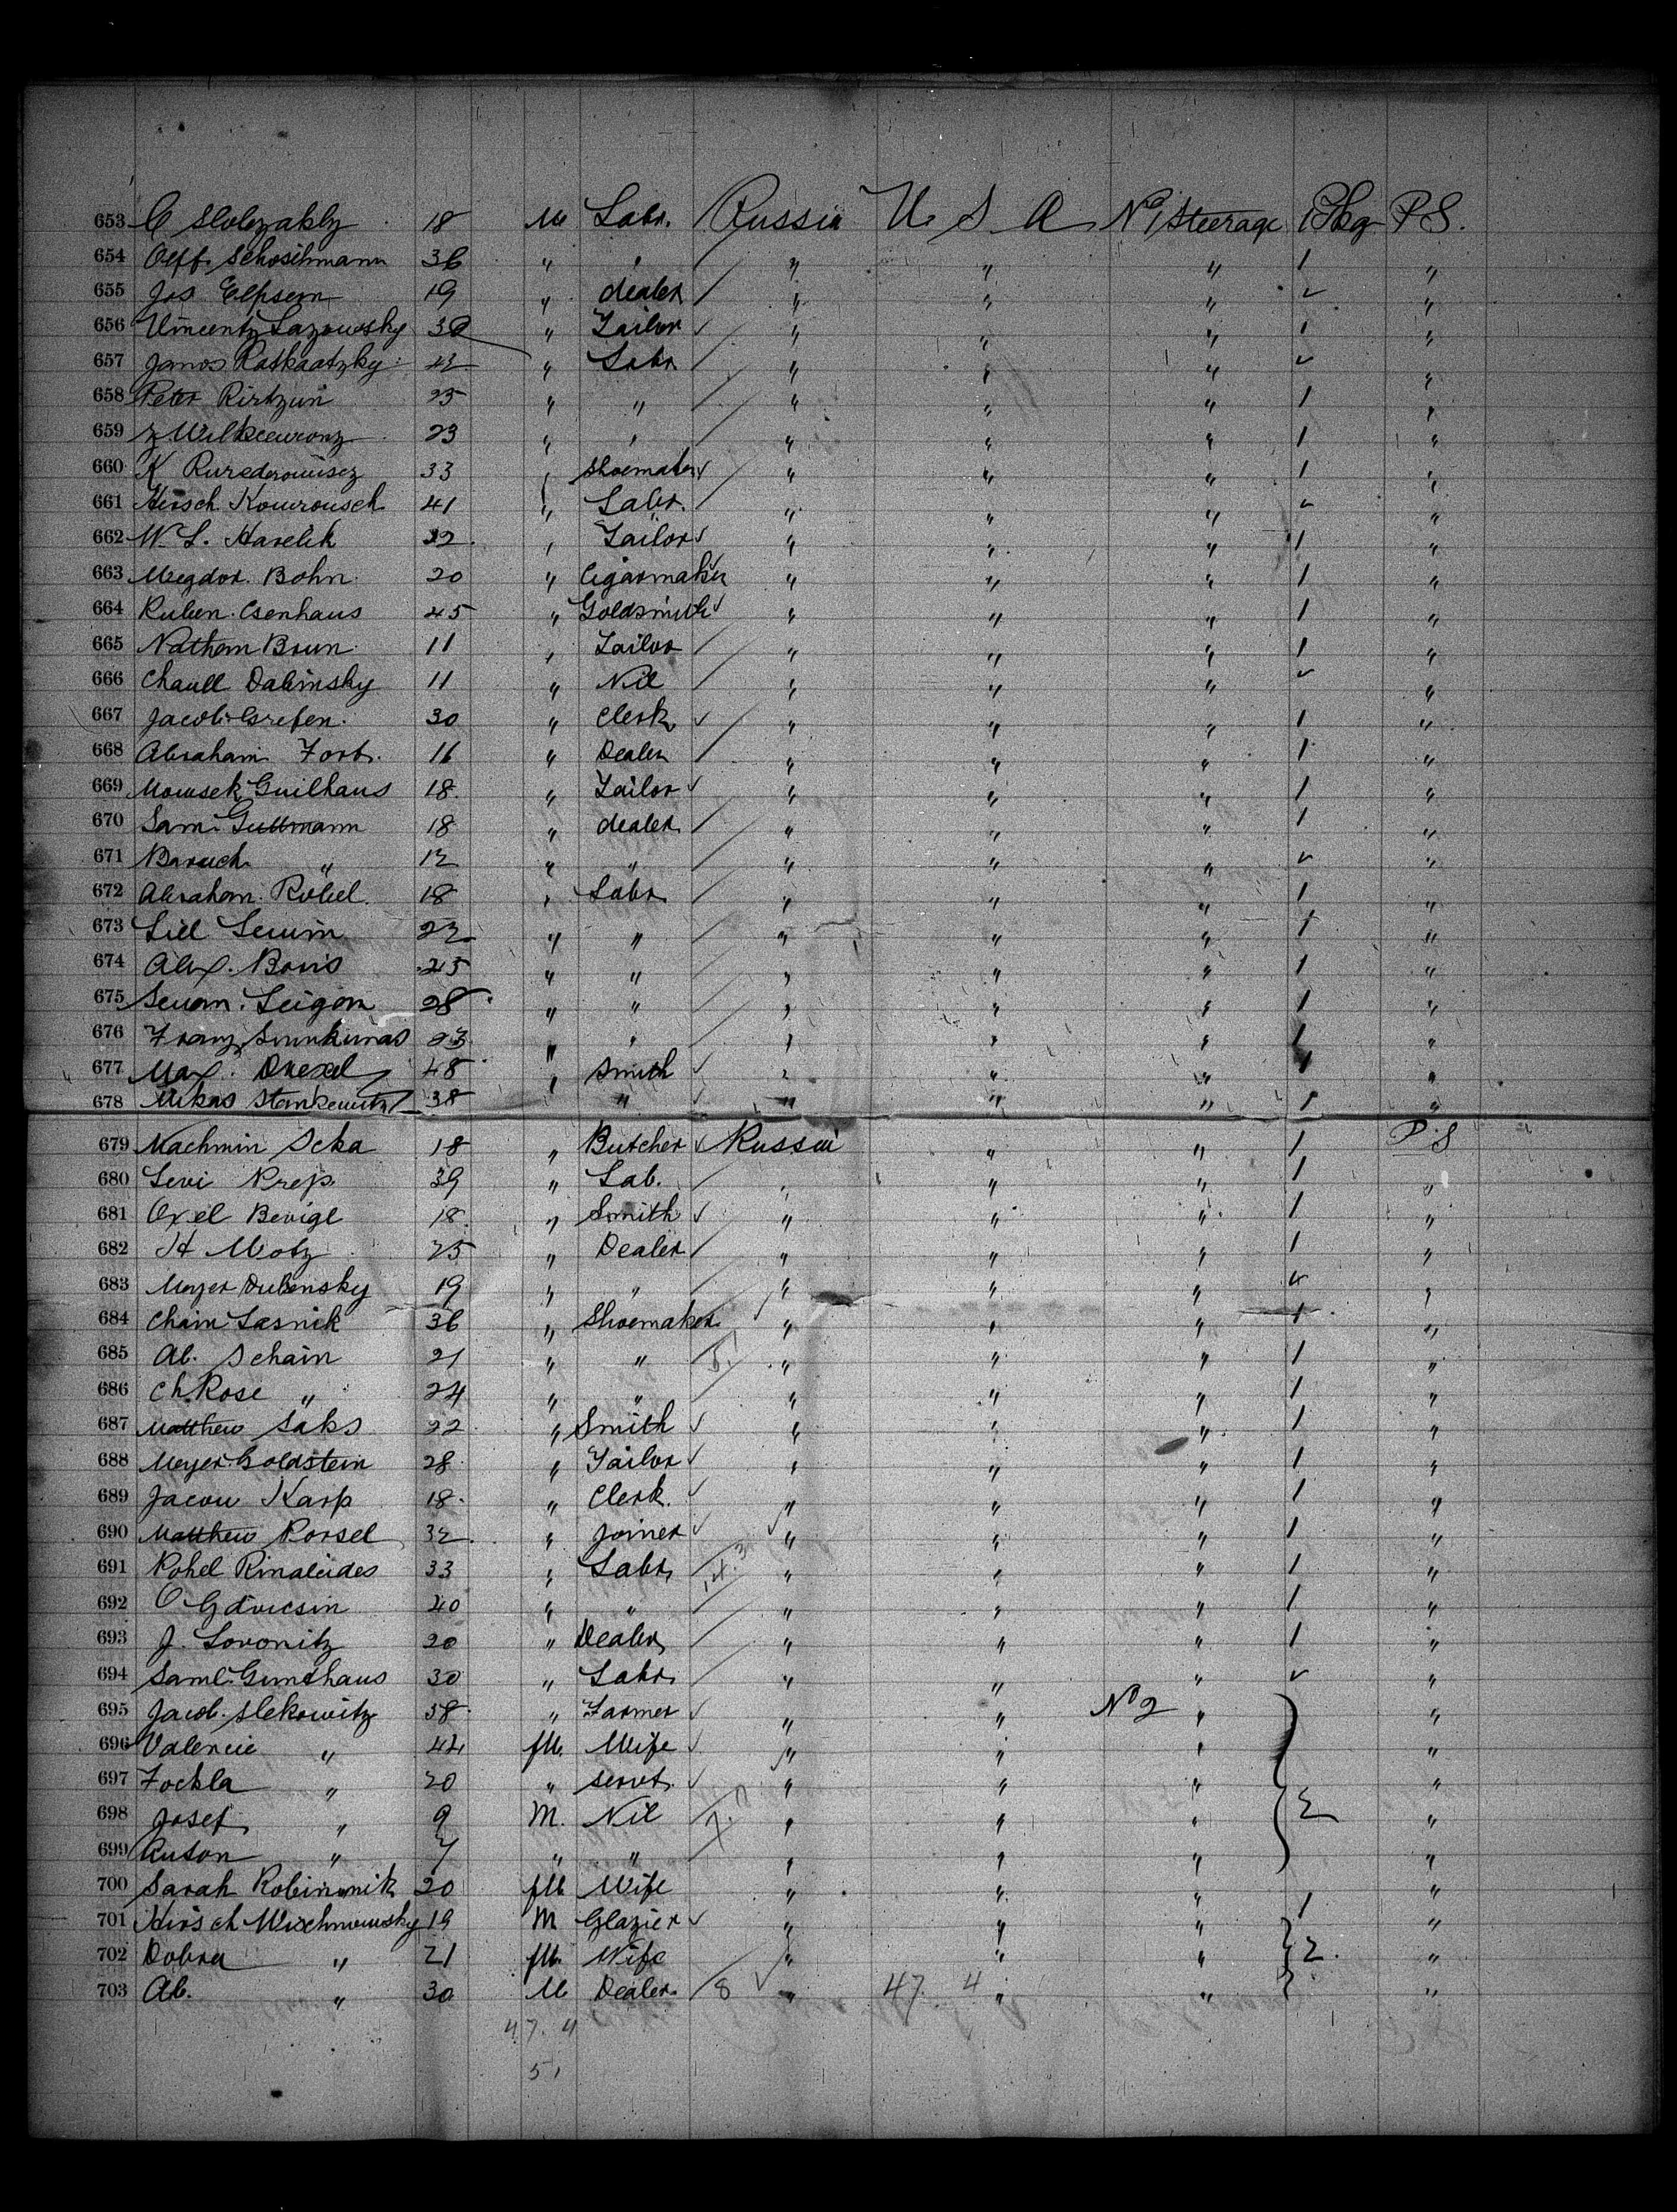 653 C Slobzakly 18 M Labr. Russia U S A No 1 Steerage 1 Pkg P S.
654 Oeff. Schosihmann 36 " " " " " 1 "
655 Jos Elpsern 19 " dealer " " " ✓ "
656 Vincentz Lazowsky 30 " Tailor ✓ " " " 1 "
657 Janos Ratkaatzky 42 " Labr " " " ✓ "
658 Peter Rirtzun 25 " " " " " 1 "
659 Z Wilkeewronz 23 " " " " " 1 "
660 K Rursderowisez 33 " Shoemaker ✓ " " " 1 "
661 Hirsch Kowrousch 41 " Labr. " " " ✓ "
662 W. L. Harelik 22 " Tailor ✓ " " " 1 "
663 Megdor. Bohn 20 " Cigarmaker " " " 1 "
664 Ruben Esenhaus 45 " Goldsmith ✓ " " " 1 "
665 Nathan Brun 11 " Tailor " " " 1 "
666 Chaull Dabinsky 11 " Nil " " " ✓ "
667 Jacob Grefen 30 " Clerk ✓ " " " 1 "
668 Abraham Forb. 16 " Dealer " " " 1 "
669 Mowsek Guilhaus 18 " Tailor ✓ " " " 1 "
670 Sam. Guttmann 18 " dealer " " " 1 "
671 Baruch " 12 " " " " " ✓ "
672 Abraham Robel 18 " Labr " " " 1 "
673 Liel Leuim 22 " " " " " 1 "
674 Alex. Boris 25 " " " " " 1 "
675 Seuan. Leigon 28 " " " " " 1 "
676 Franz Sunkunas 23 " " " " " 1 "
677 Max. Drexel 48 " Smith ✓ " " " 1 "
678 Mikas Stankewitz 38 " " ✓ " " " 1 "
679 Nachmin Scka 18 " Butcher ✓ Russia " " 1 P. S
680 Levi Krep 39 " Lab. " " " 1 "
681 Oxel Bevigl 18 " Smith ✓ " " " 1 "
682 H Motz 25 " Dealer " " " 1 "
683 Meyer Dubensky 19 " " " " " ✓ "
684 Chaim Lasnik 36 " Shoemaker ✓ " " " 1 "
685 Ab. Schain 21 " " 5 " " " 1 "
686 Ch. Rose " 24 " " " " " 1 "
687 Matthew Saks 22 " Smith ✓ " " " 1 "
688 Meyer Goldstein 28 " Tailor ✓ " " " 1 "
689 Jacou Karp 18 " Clerk. ✓ " " " 1 "
690 Matthew Rorsel 32 " Joiner ✓ ✓ " " " 1 "
691 Rohel Rinaleides 33 " Labr 14. 3 " " " 1 "
692 O Gdvicsin 20 " " " " " 1 "
693 J. Lovonitz 20 " Dealer " " " 1 "
694 Saml. Gunthaus 30 " Labr " " " ✓ "
695 Jacob. Slekowitz 58 " Farmer ✓ " " No 2 " "
696 Valencie " 42 fM. Wife ✓ " " " "
697 Fockla " 20 " servt. ✓ " " " "
698 Josef " 9 M. Nil 7. " " " 2 "
699 Anton " 7 " " " " " "
700 Sarah Robinonik 20 fM Wife " " " 1 "
701 Hirsch Wischnowsky 19 M Glazier ✓ " " " "
702 Dobra " 21 fM. Wife " " " 2. "
703 Ab. " 30 M Dealer 8 ✓ " 47. 4 " " "
47. 4
51